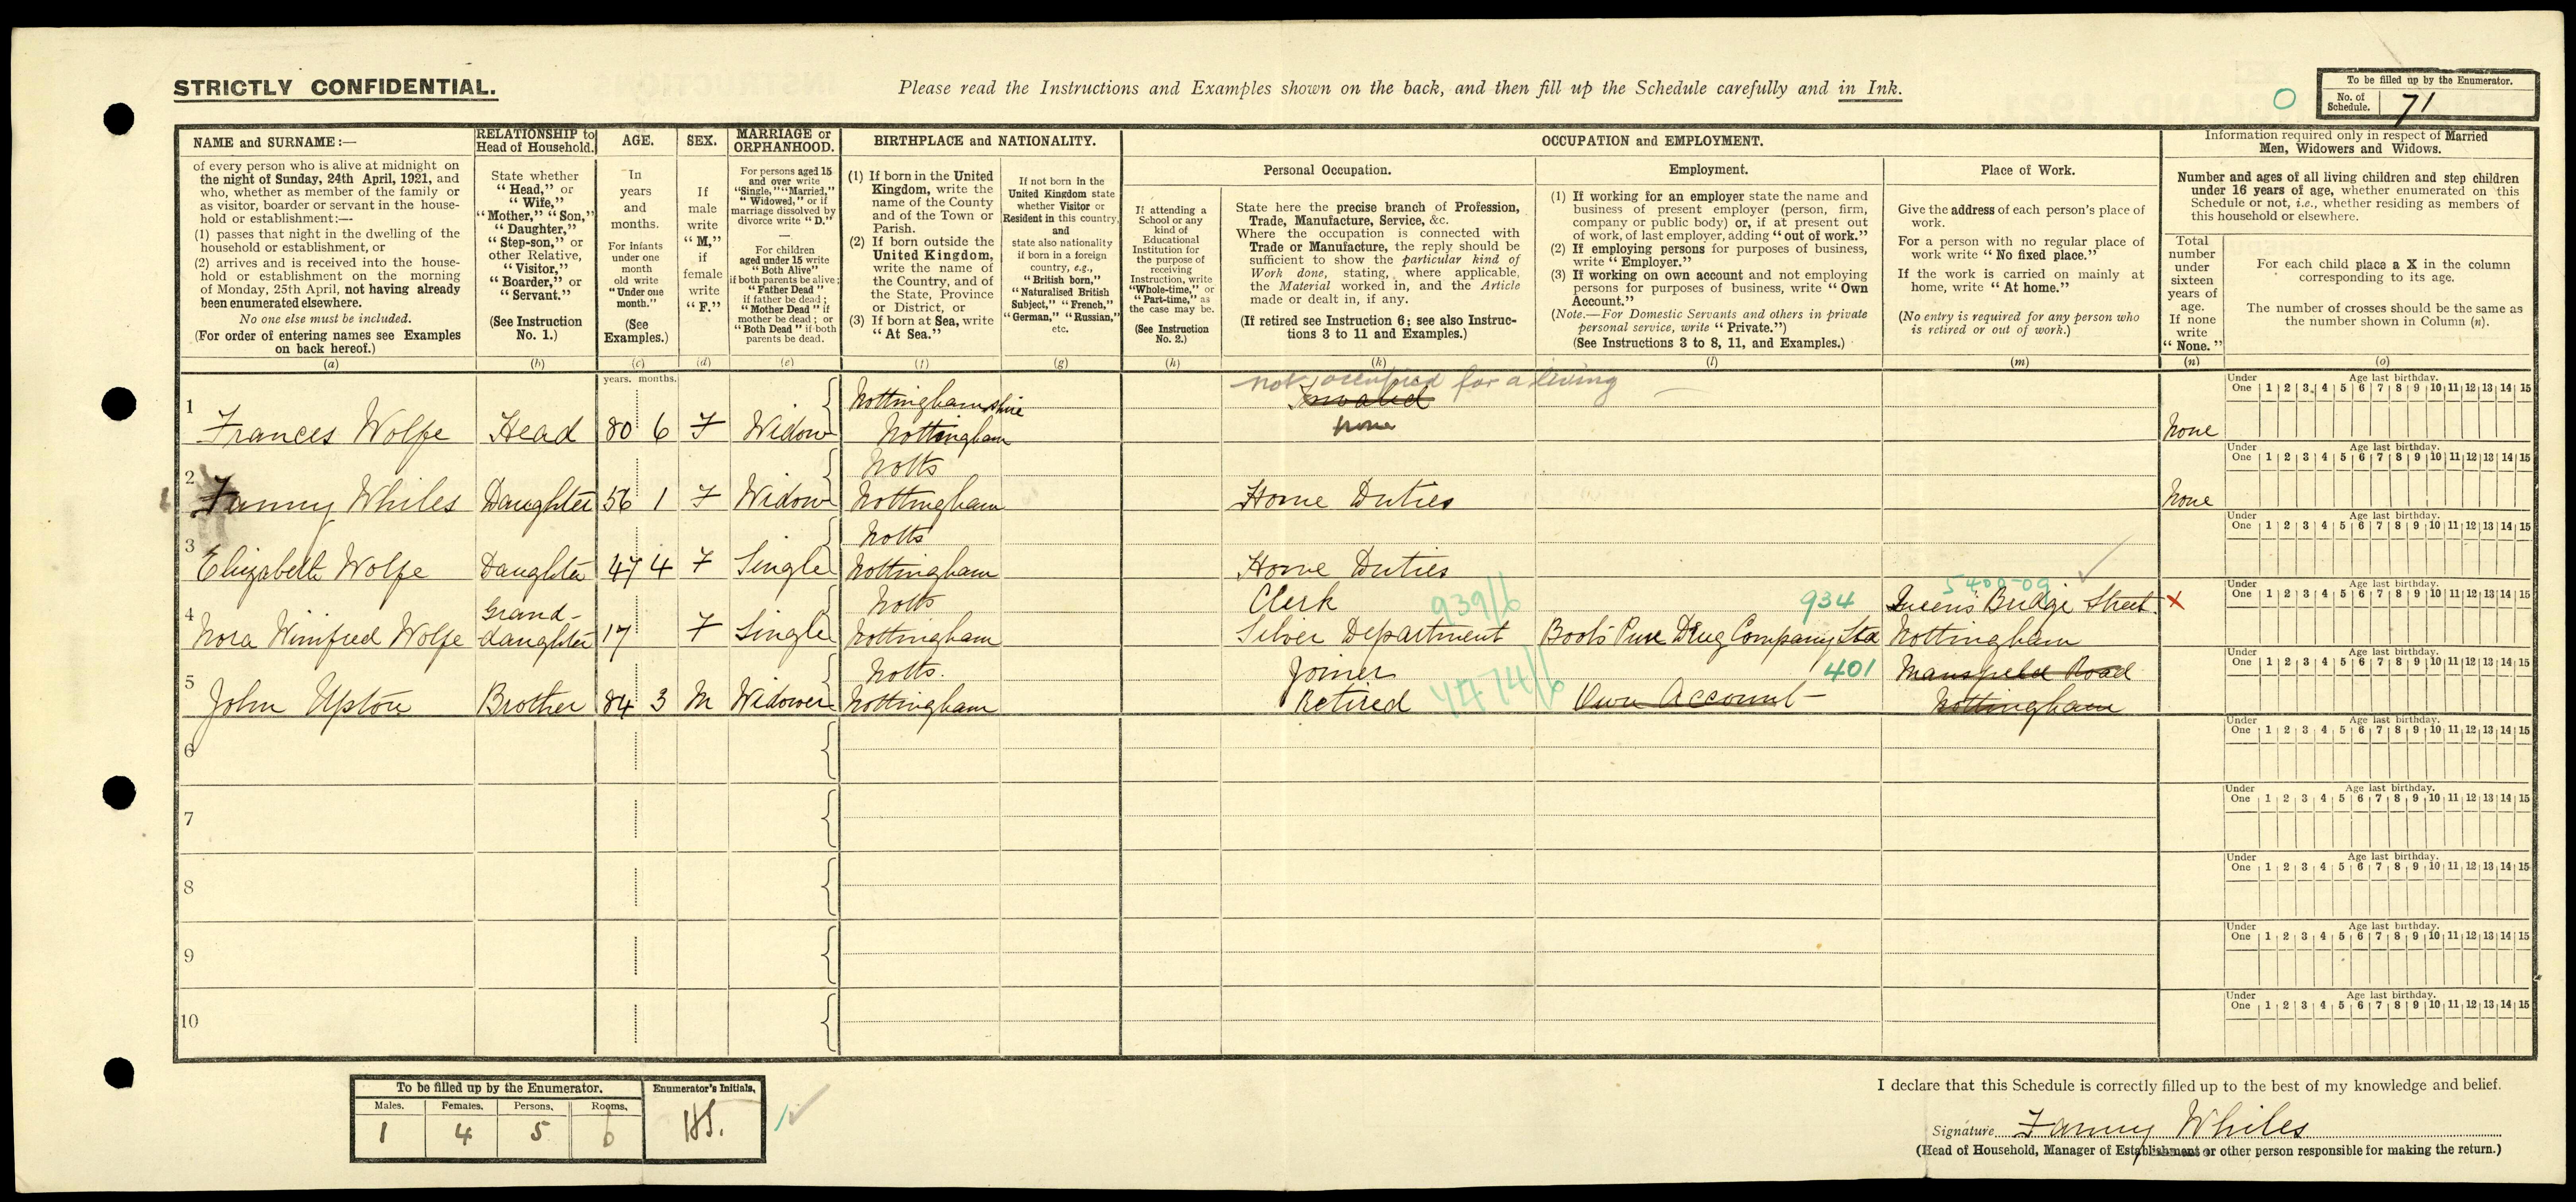 STRICTLY CONFIDENTIAL.
Please read the Instructions and Examples shown on the back, and then fill up the Schedule carefully and in Ink.
To be filled up by the Enumerator.
No. of Schedule. 71
NAME and SURNAME:—
of every person who is alive at midnight on
the night of Sunday, 24th April, 1921, and
who, whether as member of the family or
as visitor, boarder or servant in the house-
hold or establishment:—
(1) passes that night in the dwelling of the
household or establishment, or
(2) arrives and is received into the house-
hold or establishment on the morning
of Monday, 25th April, not having already
been enumerated elsewhere.
No one else must be included.
(For order of entering names see Examples
on back hereof.)
(a)
RELATIONSHIP to
Head of Household.
State whether
"Head," or
"Wife,"
"Mother," "Son,"
"Daughter,"
"Step-son," or
other Relative,
"Visitor,"
"Boarder," or
"Servant."
(See Instruction
No. 1.)
(b)
AGE.
In
years
and
months.
For infants
under one
month
old write
"Under one
month."
(See
Examples.)
(c)
SEX.
If
male
write
"M,"
if
female
write
"F."
(d)
MARRIAGE or
ORPHANHOOD.
For persons aged 15
and over write
"Single," "Married,"
"Widowed," or if
marriage dissolved by
divorce write "D."
—
For children
aged under 15 write
"Both Alive"
if both parents be alive;
"Father Dead"
if father be dead;
"Mother Dead" if
mother be dead; or
"Both Dead" if both
parents be dead.
(e)
BIRTHPLACE and NATIONALITY.
(1) If born in the United
Kingdom, write the
name of the County
and of the Town or
Parish.
(2) If born outside the
United Kingdom,
write the name of
the Country, and of
the State, Province
or District, or
(3) If born at Sea, write
"At Sea."
(f)
If not born in the
United Kingdom state
whether Visitor or
Resident in this country,
and
state also nationality
if born in a foreign
country, e.g.,
"British born,"
"Naturalised British
Subject," "French,"
"German," "Russian,"
etc.
(g)
OCCUPATION and EMPLOYMENT.
If attending a
School or any
kind of
Educational
Institution for
the purpose of
receiving
Instruction, write
"Whole-time," or
"Part-time," as
the case may be.
(See Instruction
No. 2.)
(h)
Personal Occupation.
State here the precise branch of Profession,
Trade, Manufacture, Service, &c.
Where the occupation is connected with
Trade or Manufacture, the reply should be
sufficient to show the particular kind of
Work done, stating, where applicable,
the Material worked in, and the Article
made or dealt in, if any.
(If retired see Instruction 6; see also Instruc-
tions 3 to 11 and Examples.)
(k)
Employment.
(1) If working for an employer state the name and
business of present employer (person, firm,
company or public body) or, if at present out
of work, of last employer, adding "out of work."
(2) If employing persons for purposes of business,
write "Employer."
(3) If working on own account and not employing
persons for purposes of business, write "Own
Account."
(Note.—For Domestic Servants and others in private
personal service, write "Private.")
(See Instructions 3 to 8, 11, and Examples.)
(l)
Place of Work.
Give the address of each person's place of
work.
For a person with no regular place of
work write "No fixed place."
If the work is carried on mainly at
home, write "At home."
(No entry is required for any person who
is retired or out of work.)
(m)
Information required only in respect of Married
Men, Widowers and Widows.
Number and ages of all living children and step children
under 16 years of age, whether enumerated on this
Schedule or not, i.e., whether residing as members of
this household or elsewhere.
Total
number
under
sixteen
years of
age.
If none
write
"None."
(n)
For each child place a X in the column
corresponding to its age.
The number of crosses should be the same as
the number shown in Column (n).
(o)
years. months.
not occupied for a living
Nottinghamshire Invalid
1 Frances Wolfe Head 80 6 F Widow Nottingham none None
Under One Age last birthday. 1 2 3 4 5 6 7 8 9 10 11 12 13 14 15
Notts
2 Fanny Whiles Daughter 56 1 F Widow Nottingham Home Duties None
Under One Age last birthday. 1 2 3 4 5 6 7 8 9 10 11 12 13 14 15
Notts
3 Elizabeth Wolfe Daughter 47 4 F Single Nottingham Home Duties
Under One Age last birthday. 1 2 3 4 5 6 7 8 9 10 11 12 13 14 15
Grand- Notts Clerk 939/6 934 Queens Bridge Street X
4 Nora Winifred Wolfe daughter 17 F Single Nottingham Silver Department Boots Pure Drug Company Ltd Nottingham
Under One Age last birthday. 1 2 3 4 5 6 7 8 9 10 11 12 13 14 15
Notts. Joiner 401 Mansfield Road
5 John Upton Brother 84 3 M Widower Nottingham Retired Own Account Nottingham
Under One Age last birthday. 1 2 3 4 5 6 7 8 9 10 11 12 13 14 15
6
Under One Age last birthday. 1 2 3 4 5 6 7 8 9 10 11 12 13 14 15
7
Under One Age last birthday. 1 2 3 4 5 6 7 8 9 10 11 12 13 14 15
8
Under One Age last birthday. 1 2 3 4 5 6 7 8 9 10 11 12 13 14 15
9
Under One Age last birthday. 1 2 3 4 5 6 7 8 9 10 11 12 13 14 15
10
Under One Age last birthday. 1 2 3 4 5 6 7 8 9 10 11 12 13 14 15
To be filled up by the Enumerator. Enumerator's Initials.
Males. Females. Persons. Rooms.
1 4 5 6
I declare that this Schedule is correctly filled up to the best of my knowledge and belief.
Signature Fanny Whiles
(Head of Household, Manager of Establishment or other person responsible for making the return.)